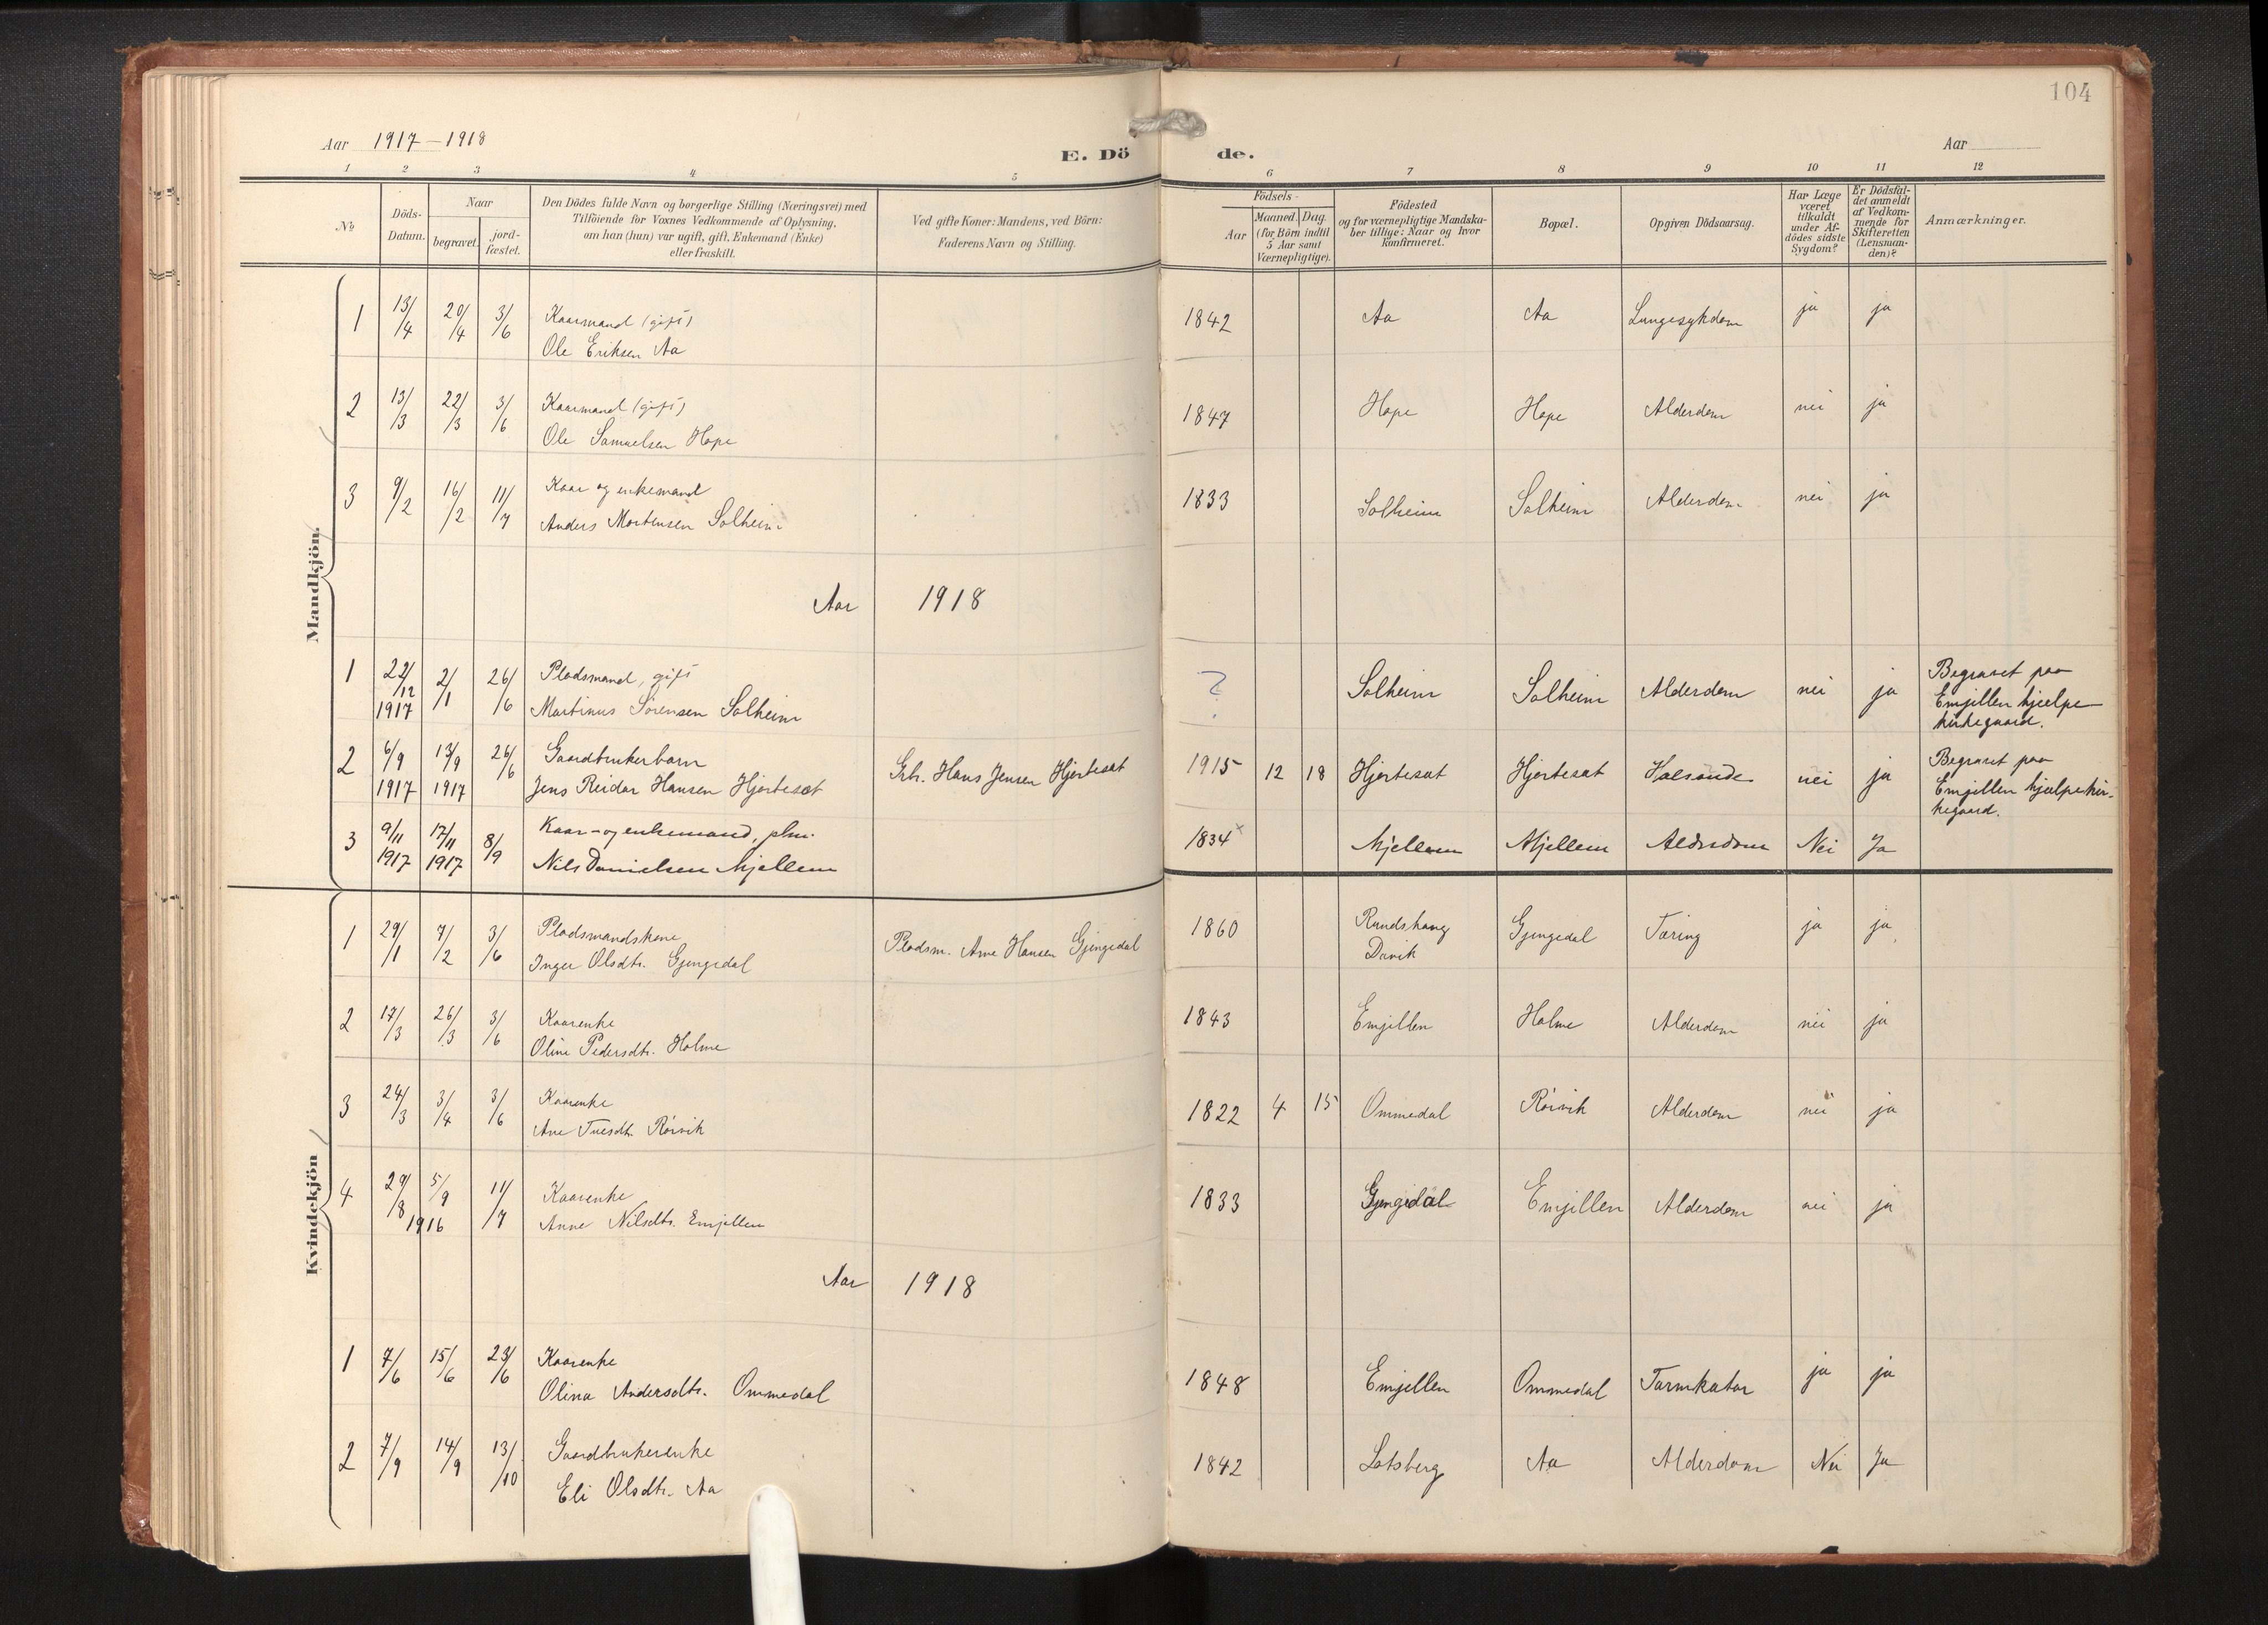 104
Aar 1917-1918
E. Dö
de.
Aar
1 2 3 4 5 6 7 8 9 10 11 12
No
Döds-
Datum.
Naar
begravet.
jord-
fæstet.
Den Dödes fulde Navn og borgerlige Stilling (Næringsvei) med
Tilföiende for Voxnes Vedkommende af Oplysning,
om han (hun) var ugift, gift, Enkemand (Enke)
eller fraskilt.
Ved gifte Koner: Mandens, ved Börn:
Faderens Navn og Stilling.
Födsels-
Aar
Maaned. Dag.
(for Börn indtil
5 Aar samt
Værnepligtige).
Födested
og for værnepligtige Mandska-
ber tillige: Naar og hvor
Konfirmeret.
Bopæl.
Opgiven Dödsaarsag.
Har Læge
været
tilkaldt
under Af-
dödes sidste
Sygdom?
Er Dödsfal-
det anmeldt
af Vedkom-
mende for
Skifteretten
(Lensman-
den)?
Anmærkninger.
Mandkjön.
1 13/4 20/4 3/6 Kaarmand (gift) 1842 Aa Aa Lungesykdom ja ja
Ole Eriksen Aa
2 13/3 22/3 3/6 Kaarmand (gift) 1847 Hope Hope Alderdom nei ja
Ole Samuelsen Hope
3 9/2 16/2 11/7 Kaar og enkemand 1833 Solheim Solheim Alderdom nei ja
Anders Mortensen Solheim
Aar 1918
1 22/12 2/1 26/6 Pladsmand, gift ? Solheim Solheim Alderdom nei ja Begravet paa
1917 Martinus Sörensen Solheim Emjellen hjælpe
kirkegaard.
2 6/9 13/9 26/6 Gaardbrukerbarn Grbr. Hans Jensen Hjortesæt 1915 12 18 Hjortesæt Hjortesæt Halsonde nei ja Begravet paa
1917 1917 Jens Reidar Hansen Hjortesæt Emjellen hjælpekir-
kegaard.
3 9/11 17/11 8/9 Kaar- og enkemand, plm. 1834 x Mjellem Mjellem Alderdom Nei Ja
1917 1917 Nils Danielsen Mjellem
Kvindekjön
1 29/1 7/2 3/6 Pladsmandskone Pladsm. Arne Hansen Gjengedal 1860 Rundshaug Gjengedal Tæring ja ja
Inger Olsdtr. Gjengedal Davik
2 17/3 26/3 3/6 Kaarenke 1843 Emjellen Holme Alderdom nei ja
Oline Pedersdtr. Holme
3 24/3 3/4 3/6 Kaarenke 1822 4 15 Ommedal Röivik Alderdom nei ja
Ane Röivik
4 29/8 5/9 11/7 Kaarenke 1833 Gjengedal Emjellen Alderdom nei ja
1916 Anne Nilsdtr. Emjellen
Aar 1918
1 7/6 15/6 23/6 Kaarenke 1848 Emjellen Ommedal Tarmkatar ja ja
Olina Andersdtr. Ommedal
2 7/9 14/9 13/10 Gaardbrukerenke 1842 Lotsberg Aa Alderdom Nei Ja
Eli Olsdtr. Aa